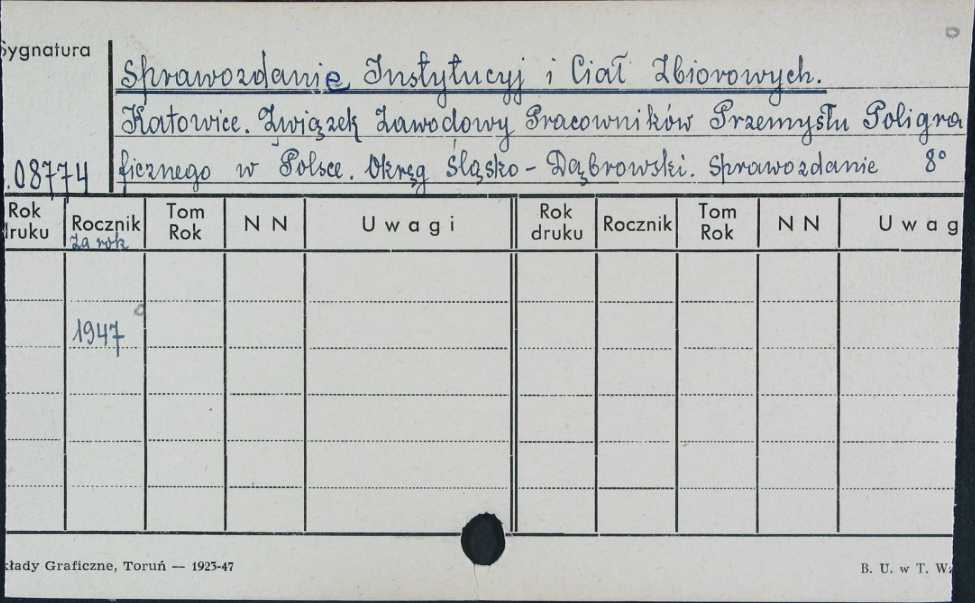 Sygnatura
Sprawozdanie Instytucyj i Ciał Zbiorowych.
Katowice. Związek Zawodowy Pracowników Przemysłu Poligra
.08774 ficznego w Polsce. Okręg Śląsko-Dąbrowski. Sprawozdanie 8°
Rok druku Rocznik Tom Rok N N Uwagi Rok druku Rocznik Tom Rok N N Uwag
za rok
1947
kłady Graficzne, Toruń — 1923-47 B. U. w T. Wz